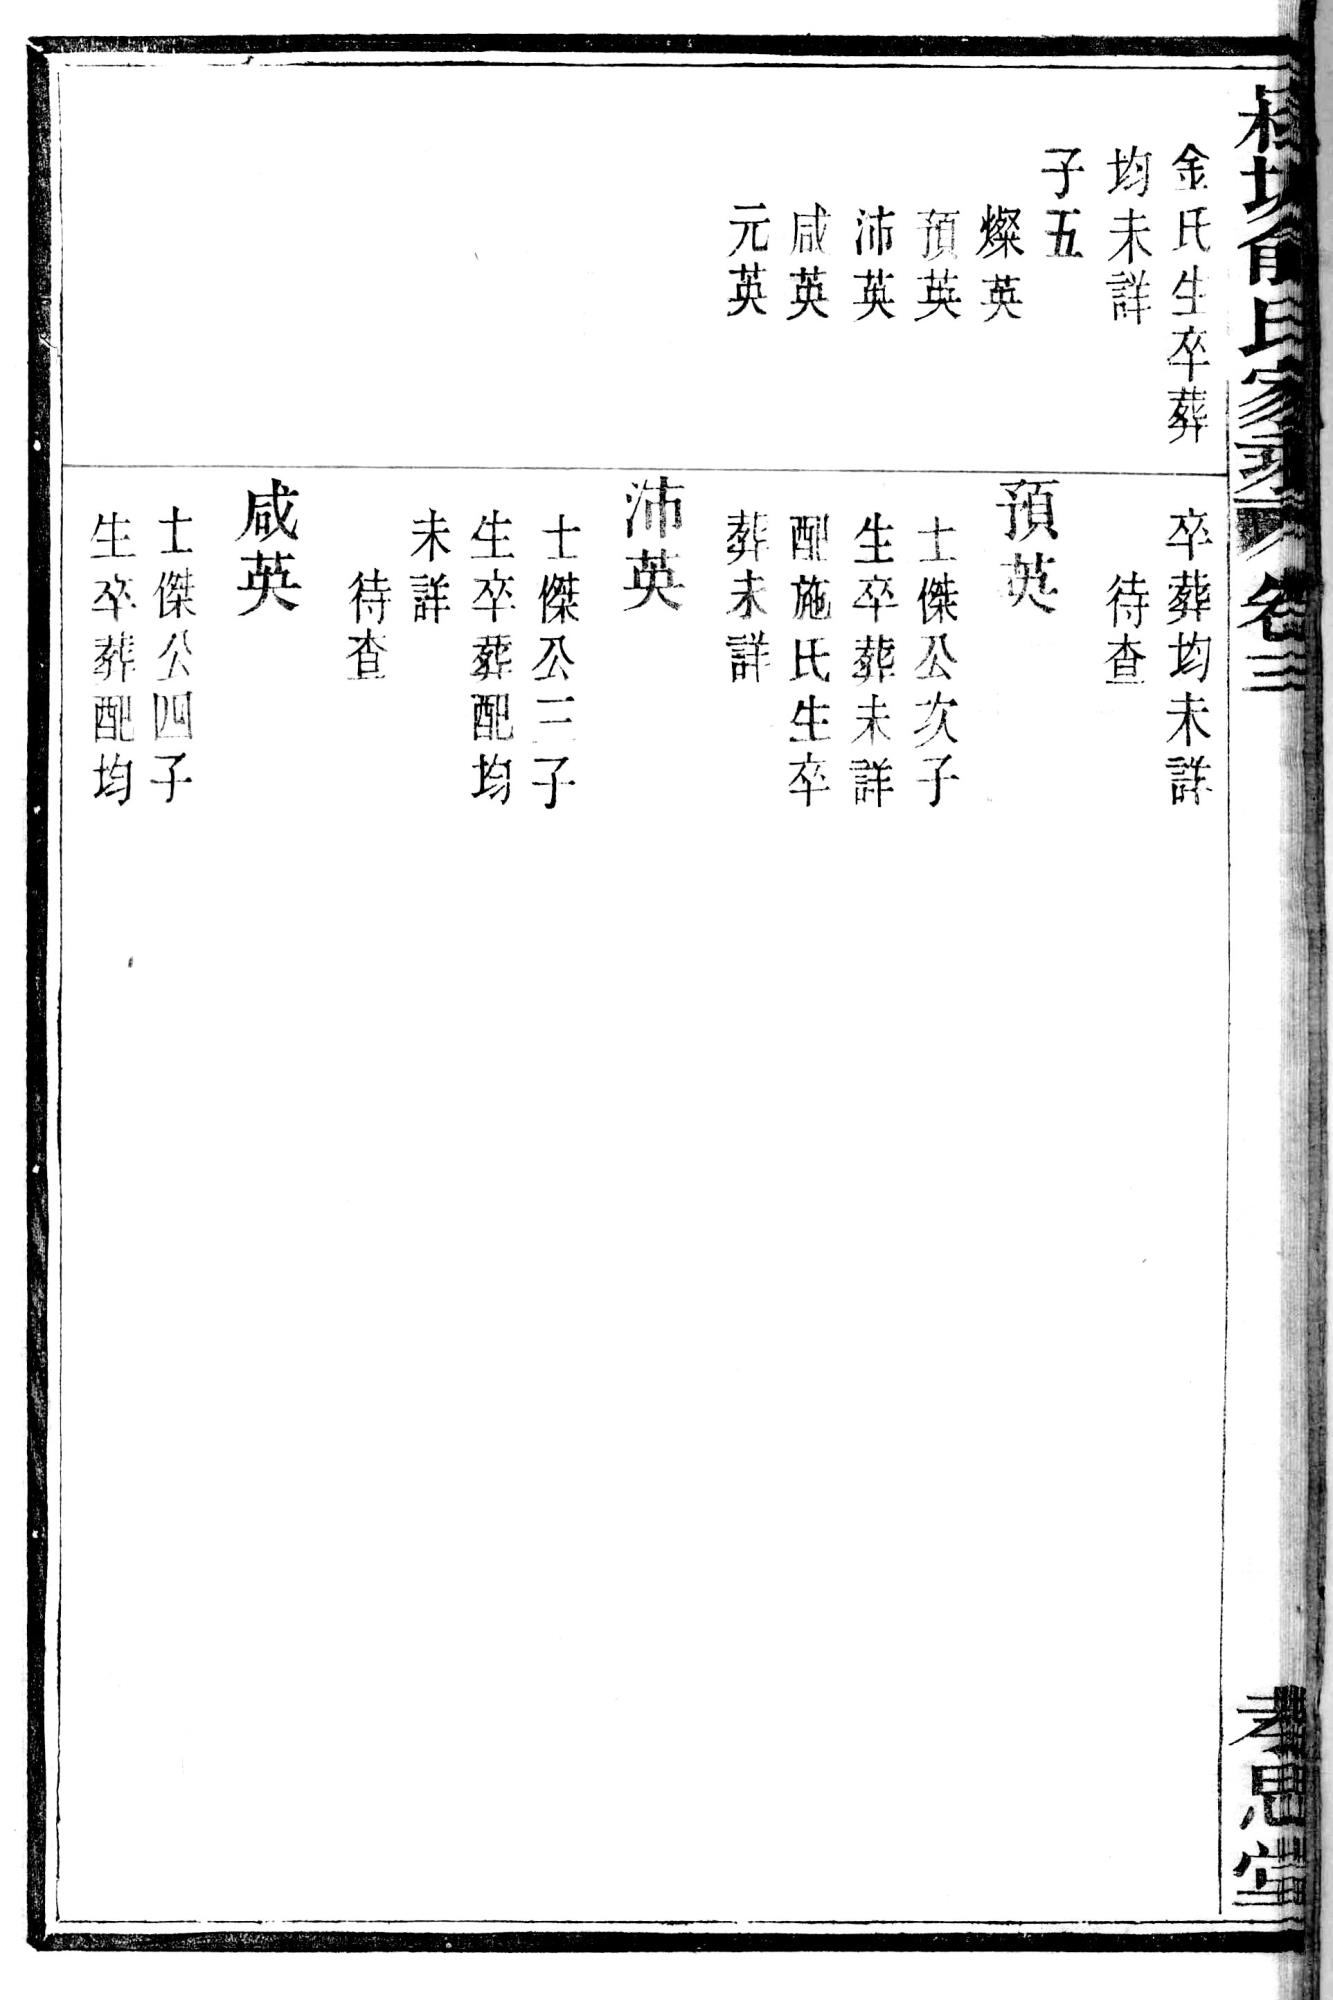 俞氏家乘
卷三
孝思堂
金氏生卒葬
均未詳
子五
燦英
預英
沛英
咸英
元英
卒葬均未詳
待查
預英
士傑公次子
生卒葬未詳
配施氏生卒
葬未詳
沛英
士傑公三子
生卒葬配均
未詳
待查
咸英
士傑公四子
生卒葬配均